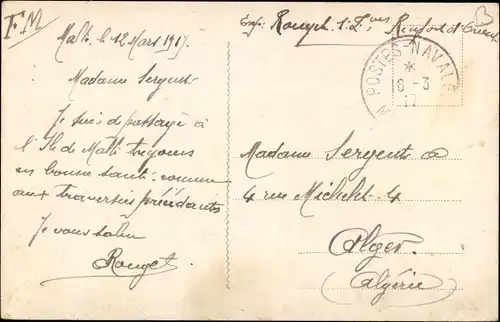 FM
Malte le 12 Mars 1917.
Madame Sergent
Je suis de passage à
l'Ile de Malte toujours
en bonne santé comme
aux traversées précédantes
Je vous salue
Rouget
Exp: Rouget 1:Z Renfort d'Orient
POSTES NAVALE
*
8-3
17
Madame Sergent
4 rue Michelet 4
Alger
(Algérie)